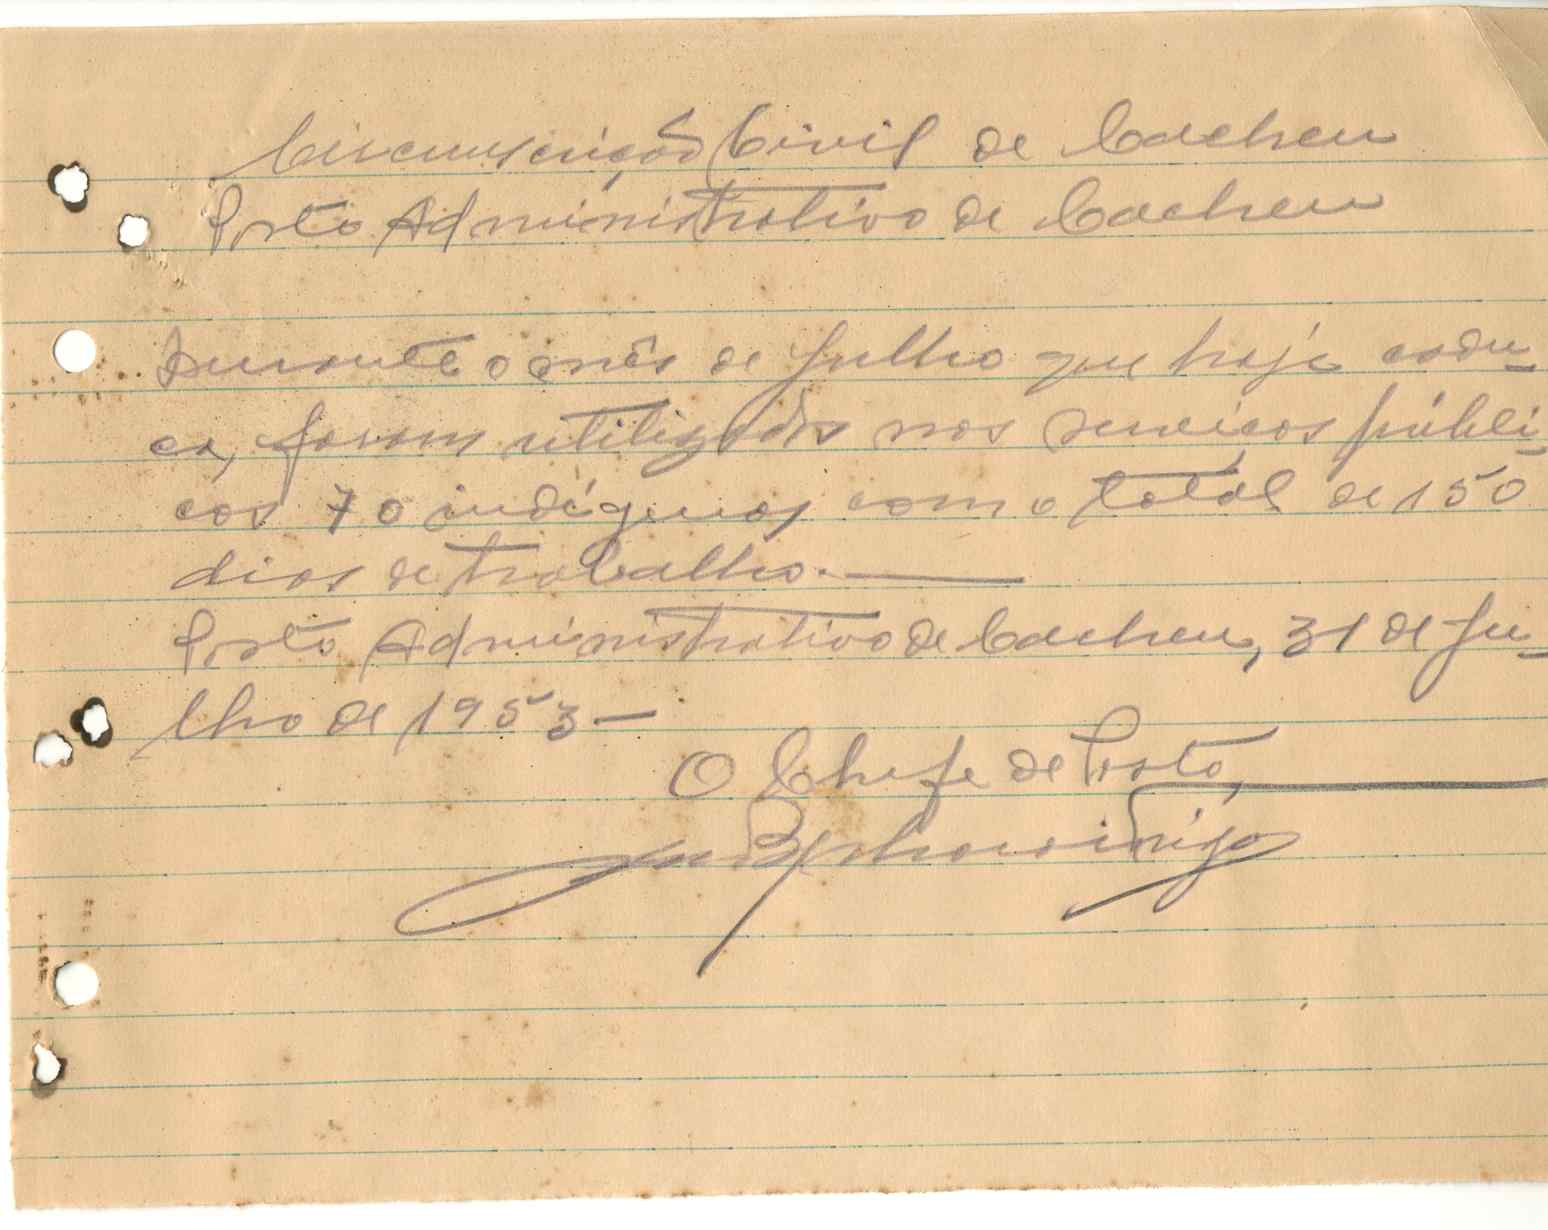 Circunscrição Civil de Cacheu
Posto Administrativo de Cacheu
Durante o mês de Julho que hoje cadu-
ca, foram utilizados nos serviços públi-
cos 70 indígenas com o total de 150
dias de trabalho.
Posto Administrativo de Cacheu, 31 de Ju-
lho de 1953 —
O Chefe de Posto,